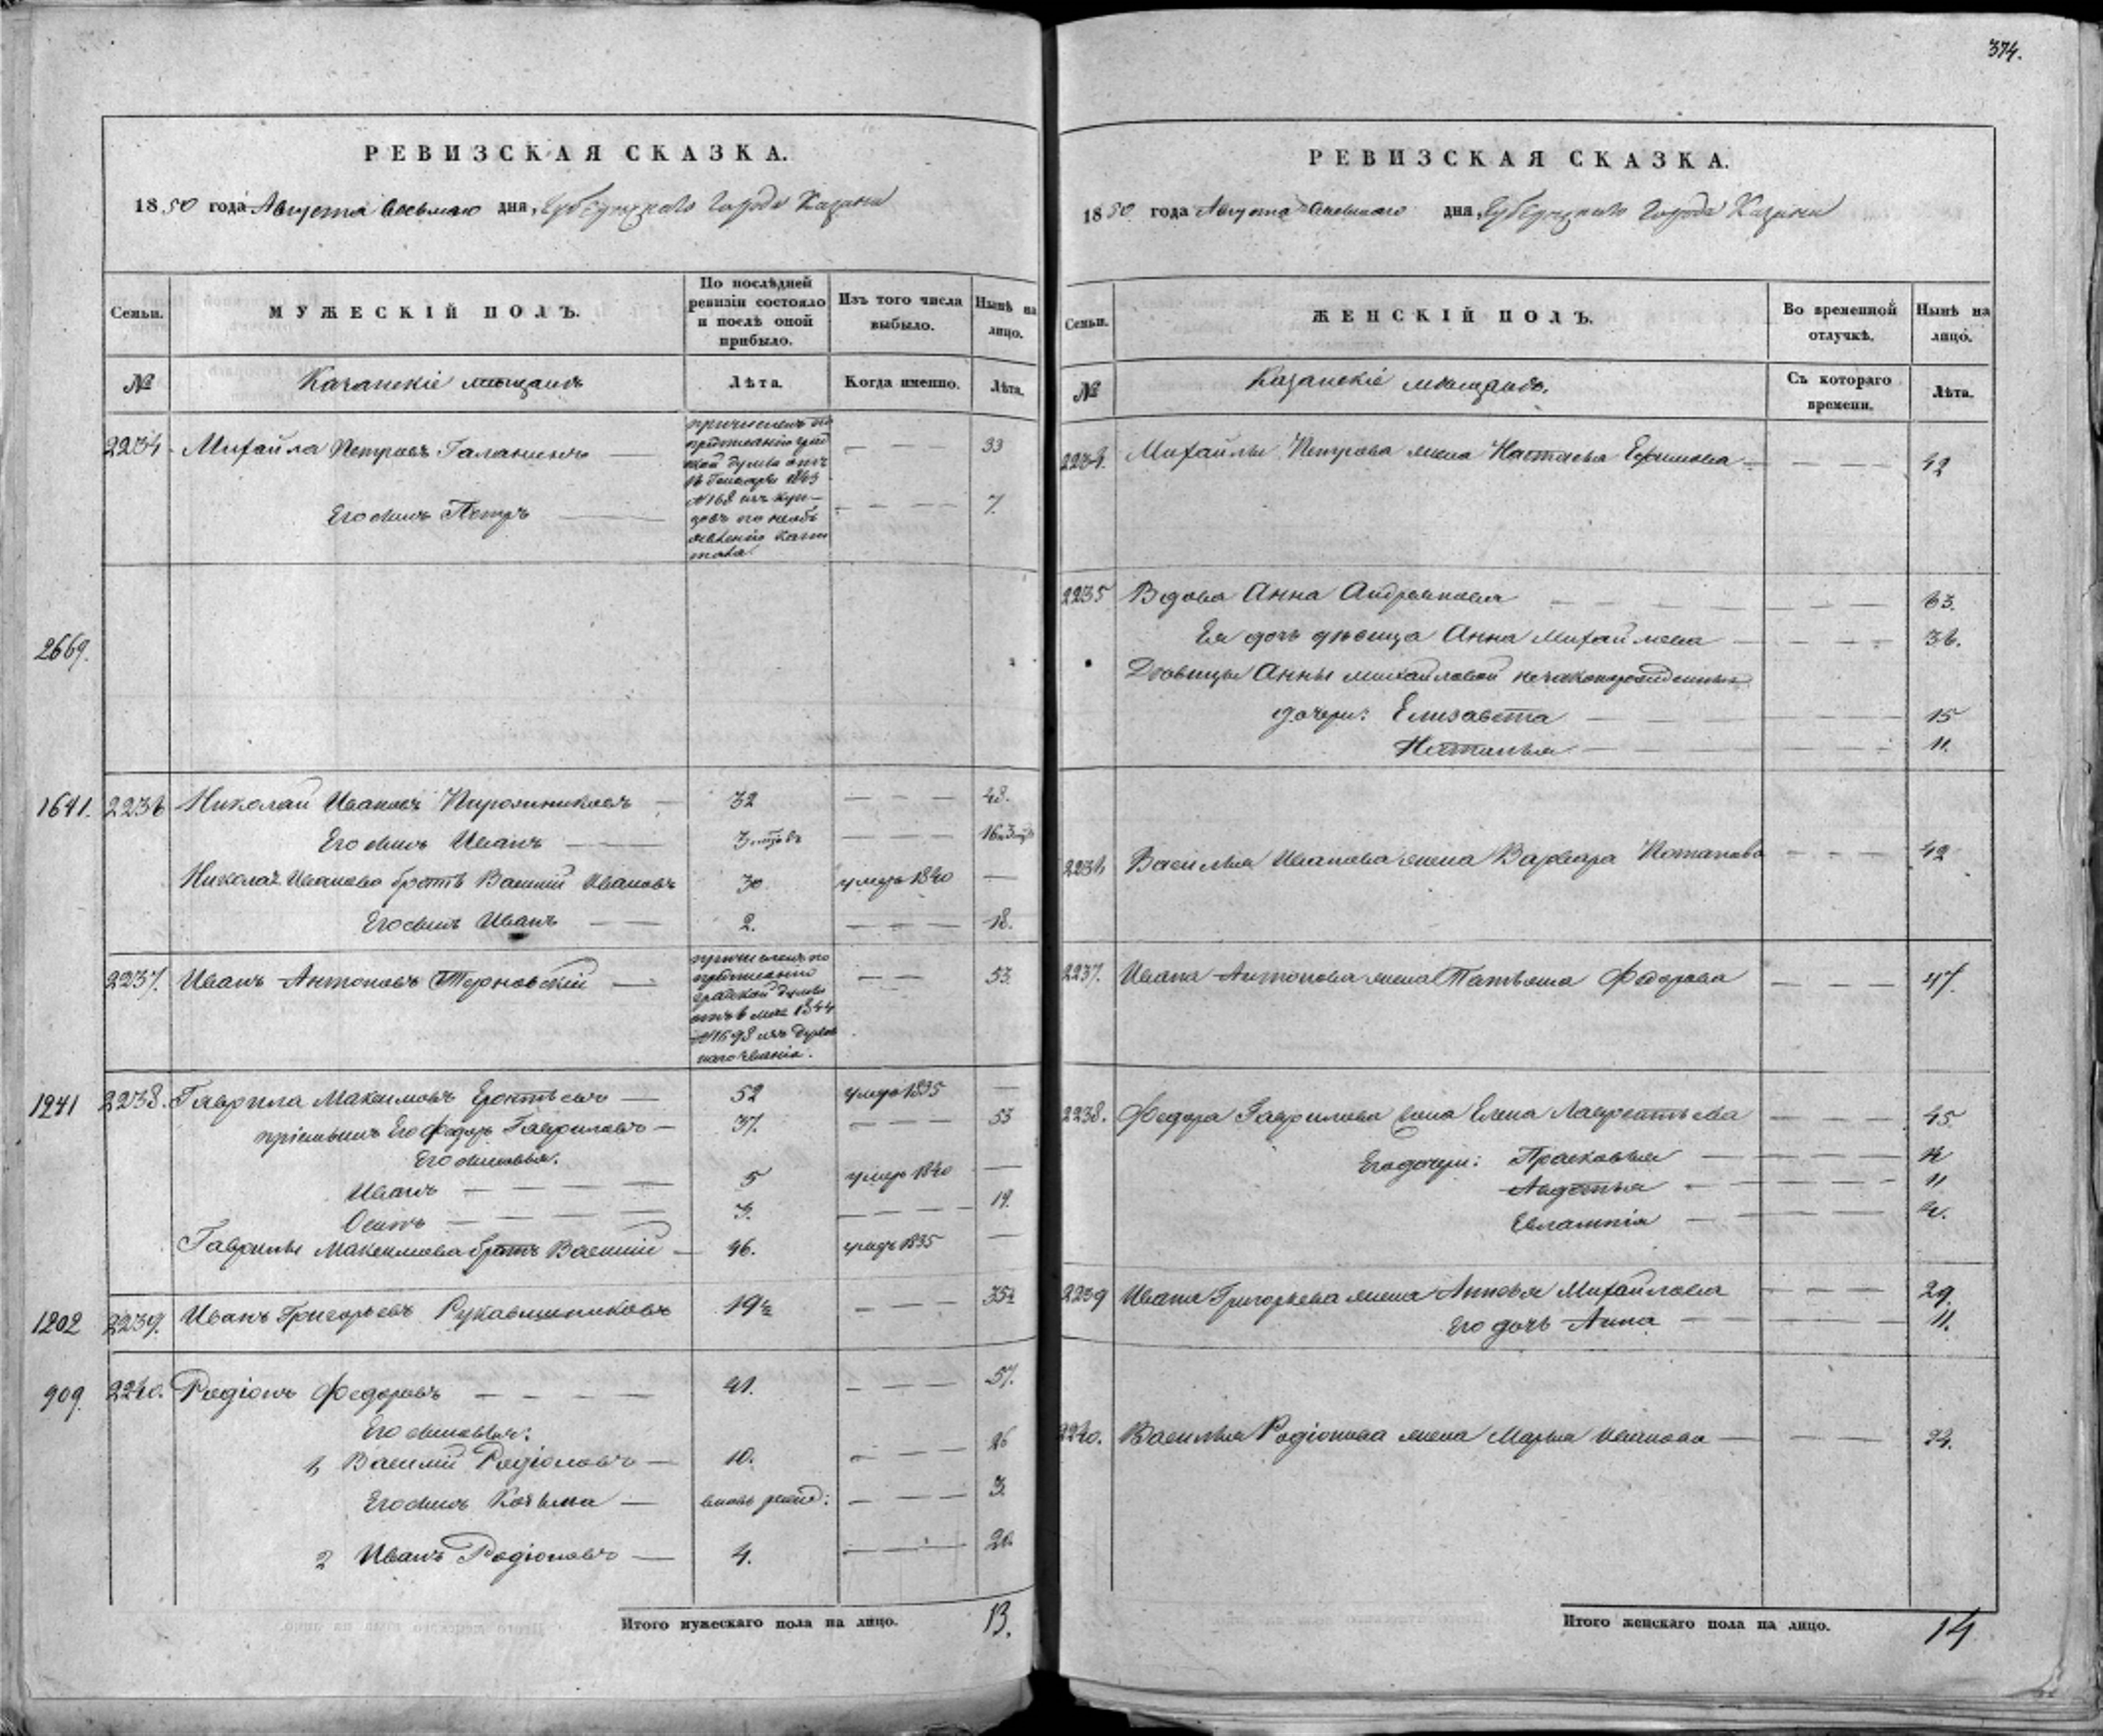 374.
РЕВИЗСКАЯ СКАЗКА.
1850 года Августа восьмаго дня, Губернскаго города Казани
Семьи.
МУЖЕСКІЙ ПОЛЪ.
По послѣдней ревизіи состояло и послѣ оной прибыло.
Изъ того числа выбыло.
Нынѣ на лицо.
№
Казанскіе мѣщане
Лѣта.
Когда именно.
Лѣта.
2234 Михайла Петровъ Галанинъ — — — 33
причисленъ по
предписанію град
ской думы отъ
Генваря 1843
№168 изъ куп-
цовъ по необъ
явленію капи
тала.
Его сынъ Петръ — — — 7.
2669.
1641. 2236 Николай Ивановъ Пирожниковъ — 32 — — — 48.
Его сынъ Иванъ — 3 мѣся — — — 16
Николая Иванова братъ Василій Ивановъ 30 умеръ 1840 —
Его сынъ Иванъ — — 2. — — — 18.
2237. Иванъ Антоновъ Терновскій — — — 53.
причисленъ по
предписанію
градской думы
отъ 6 мая 1844
№1698 изъ духов
наго званія.
1241 2238. Гаврила Максимовъ — 52 умеръ 1835 —
пріемышъ Его Федоръ Гавриловъ — 37. — — — 53
Его сыновья.
Иванъ — — — — 5 умеръ 1840 —
Осипъ — — — — 3. — — — 19.
Гаврилы Максимова братъ Василій — 46. умеръ 1835 —
1202 2239. Иванъ Григорьевъ Рукавишниковъ 19½ — — — 35½
909. 2240. Родіонъ Федоровъ — — — — 41. — — — 57.
Его сыновья:
1, Василій Родіоновъ — 10. — — — 26
Его сынъ Козьма — вновь рожд: — — — 3.
2 Иванъ Родіоновъ — 4. — — — 20.
Итого мужескаго пола на лицо. 13.
РЕВИЗСКАЯ СКАЗКА.
1850 года Августа осьмаго дня, Губернскаго города Казани
Семьи.
ЖЕНСКІЙ ПОЛЪ.
Во временной отлучкѣ.
Нынѣ на лицо.
№
Казанскіе мѣщане.
Съ котораго времени.
Лѣта.
2234. Михайлы Петрова жена Настасья Ефимова — 42
2235 Вдова Анна Андреянова — — — — 63.
Ея дочь дѣвица Анна Михайлова — — — — 36.
Дѣвицы Анны Михайловой незаконорожденныя
дочери: Елизавета — — — — 15
Наталья — — — — 11.
2236 Василья Иванова жена Варвара Потапова — — — 42
2237. Ивана Антонова жена Татьяна Федорова — — — 47.
2238. Федора Гаврилова жена Елена Лаврентьева — — — 45
Его дочери: Прасковья — — — —
Авдотья — — — — 11
Евлампія — — — —
2239 Ивана Григорьева жена Михайлова — — — 29.
Его дочь Анна — — — — 11.
2240. Василья Родіонова жена Марья Иванова — — — 24.
Итого женскаго пола на лицо. 14